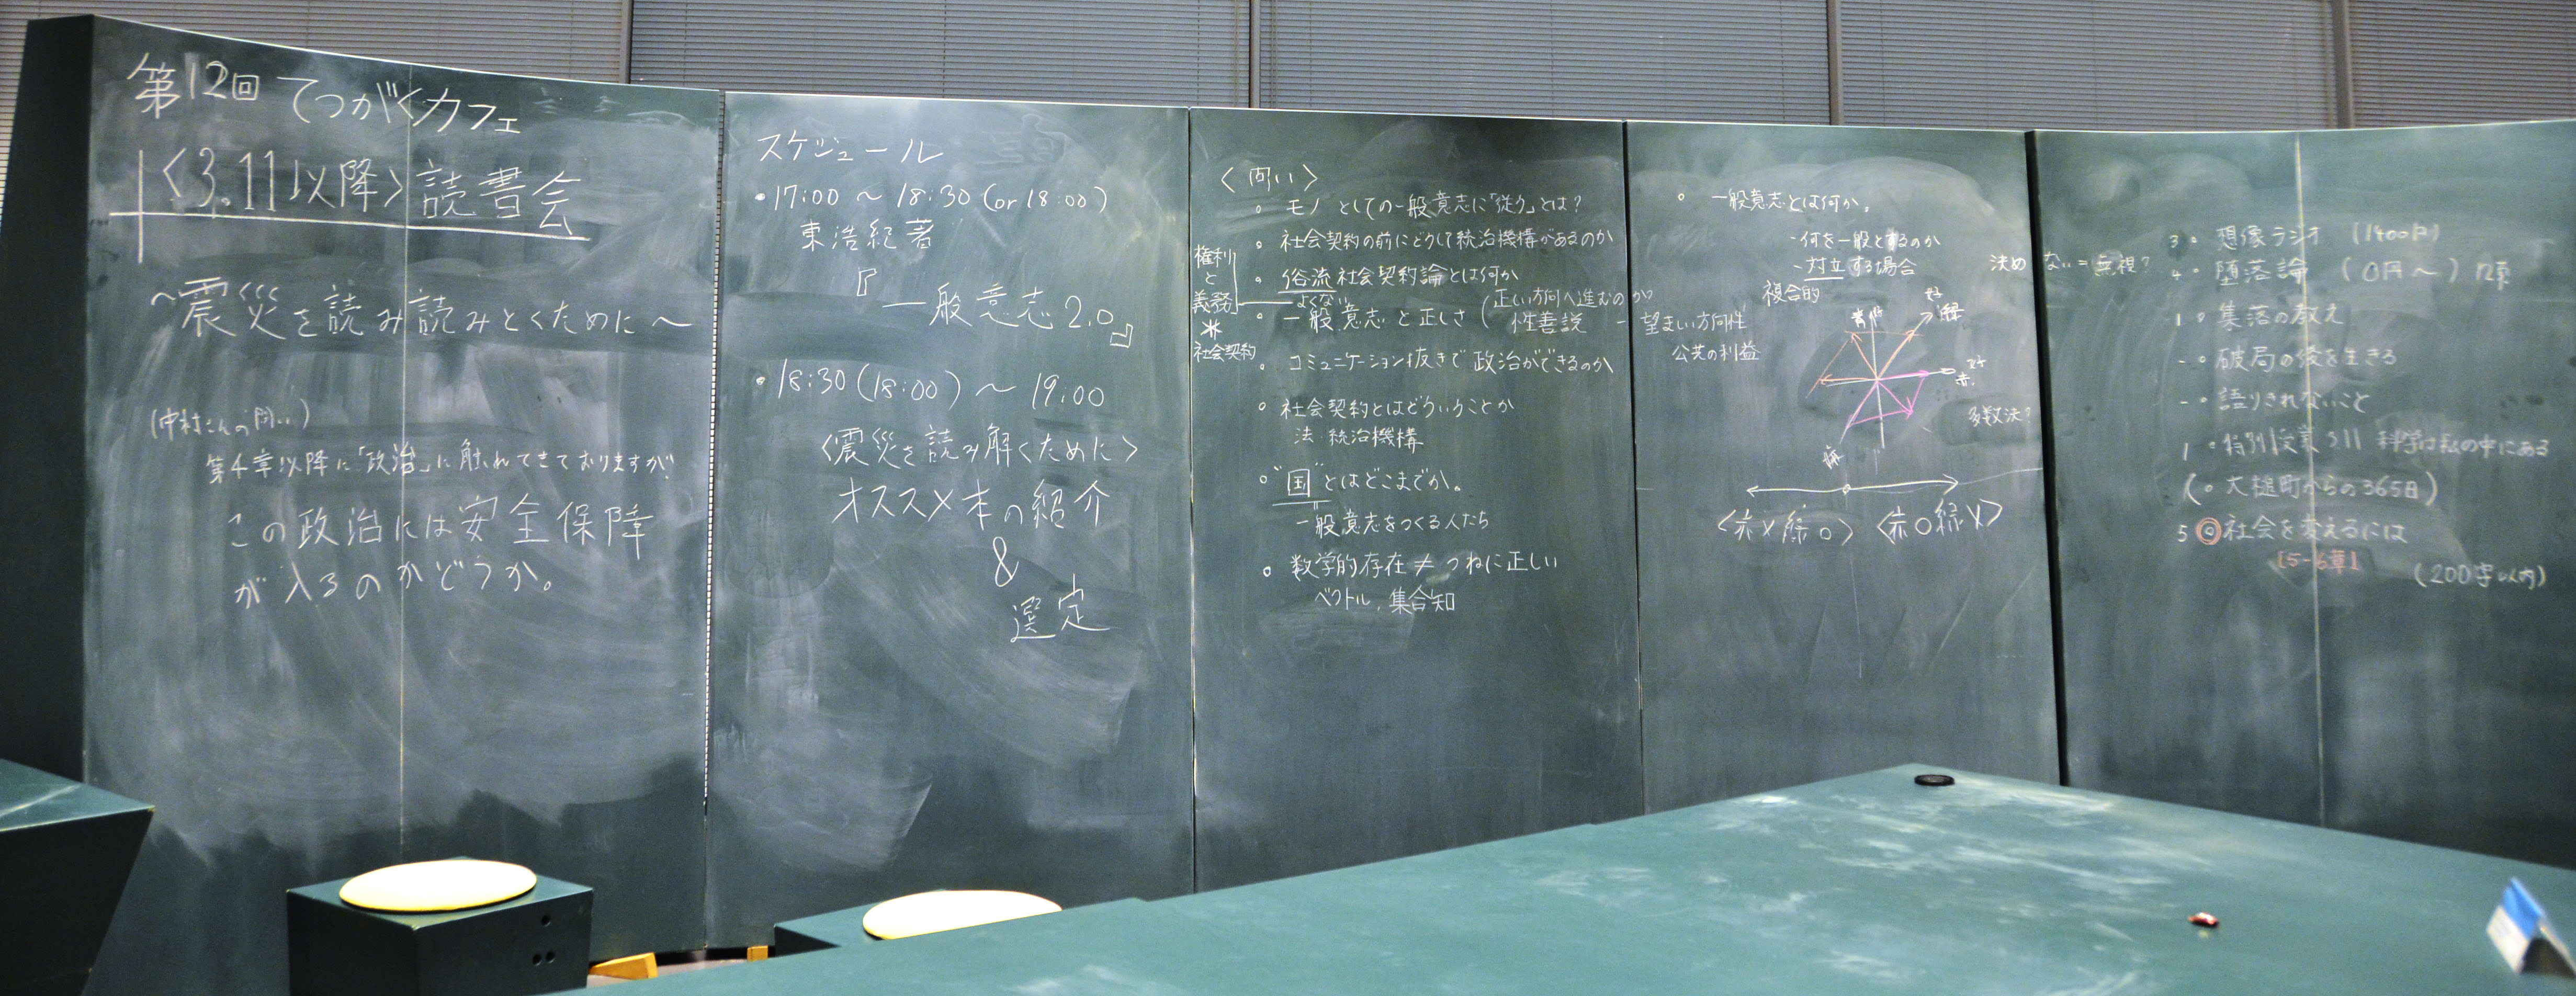 第12回 てつがくカフェ
〈3.11以降〉読書会
～震災を読み読みとくために～
(中村さんの問い)
第4章以降に「政治」に触れてきておりますが
この政治には安全保障
が入るのかどうか。
スケジュール
・17:00 ～ 18:30 (or 18:00)
東浩紀著
『一般意志2.0』
・18:30 (18:00) ～ 19:00
〈震災を読み解くために〉
オススメ本の紹介
&
選定
〈問い〉
。モノとしての一般意志に「従う」とは?
。社会契約の前にどうして統治機構があるのか
。俗流社会契約論とは何か
よくない
。一般意志と正しさ (正しい方向へ進むのか?
性善説 - 望ましい方向性
公共の利益
。コミュニケーション抜きで政治ができるのか
。社会契約とはどういうことか
法・統治機構
。"国"とはどこまでか。
一般意志をつくる人たち
。数学的存在 ≠ つねに正しい
ベクトル, 集合知
権利
と
義務
*
社会契約
。一般意志とは何か。
- 何を一般とするのか
- 対立する場合
複合的
決め ない = 無視?
好
緑
好
赤
多数決?
〈赤×緑○〉 〈赤○緑×〉
3 。想像ラジオ (1400円)
4 。堕落論 (0円～)
1 。集落の教え
- 。破局の後を生きる
- 。語りきれないこと
1 。特別授業311 科学は私の中にある
(。大槌町からの365日)
5 ◎社会を変えるには
[5-6章]
(200字以内)